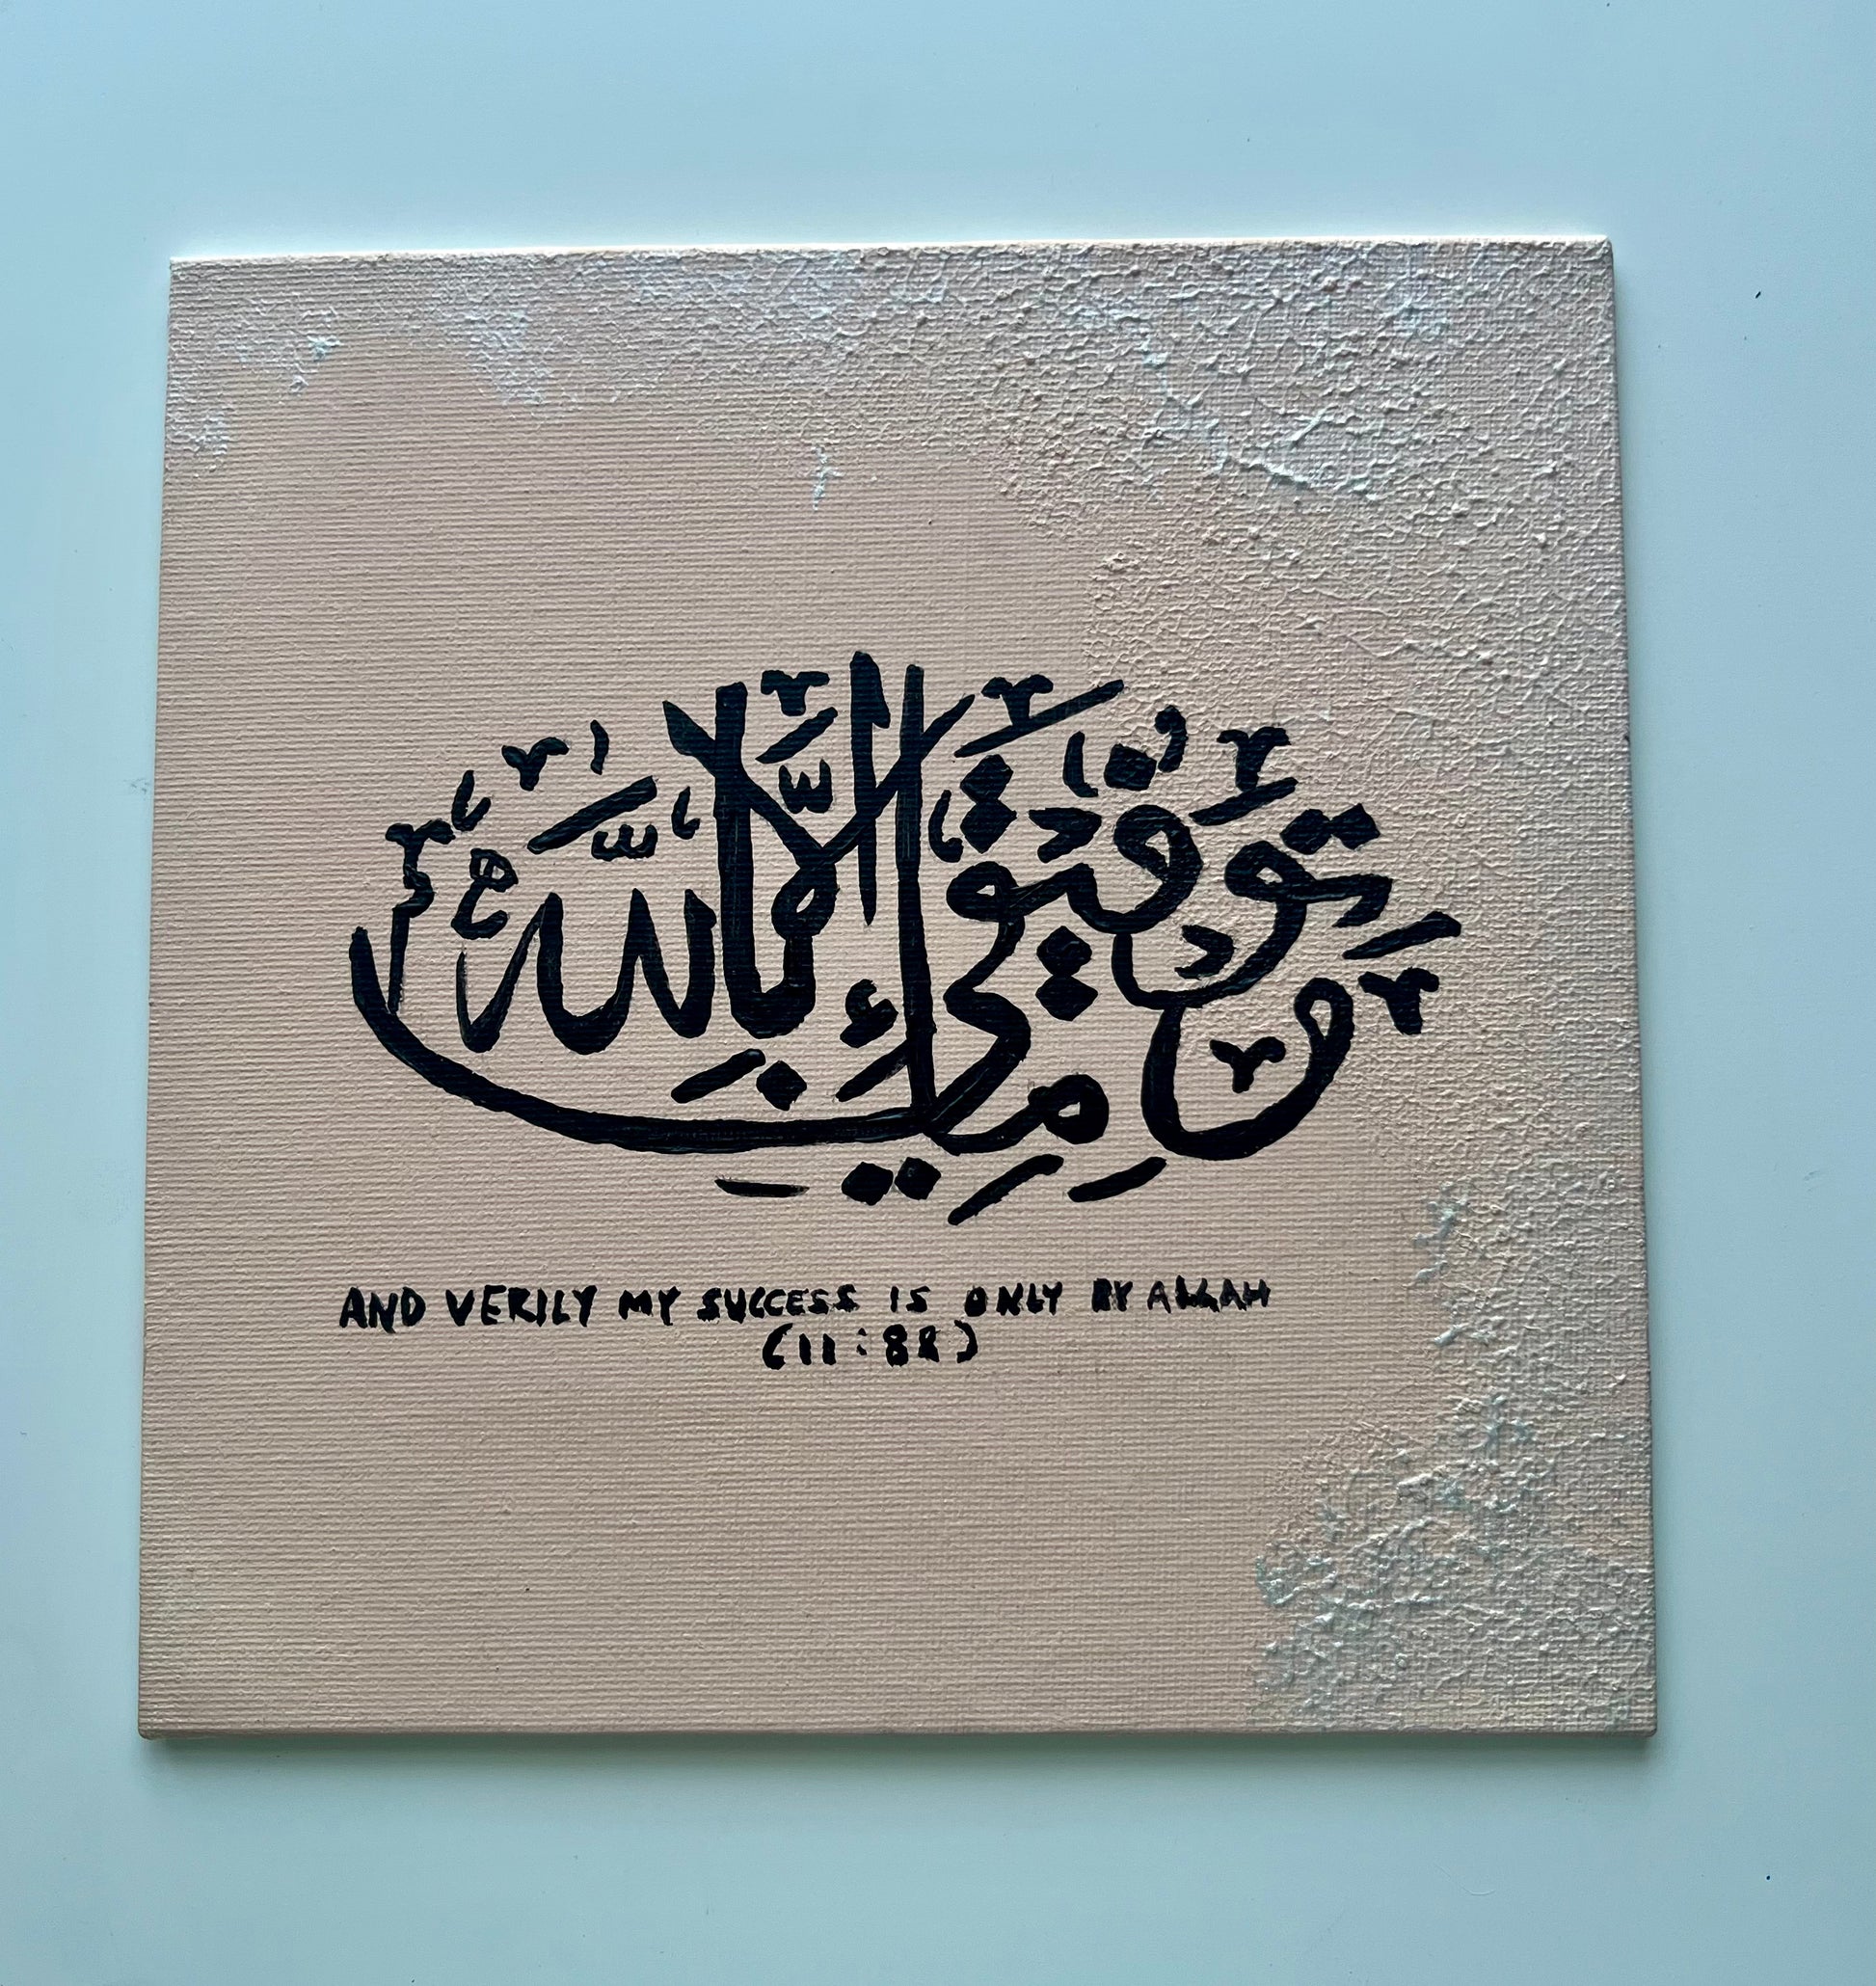 وما توفيقي إلا بالله
AND VERILY MY SUCCESS IS ONLY BY ALLAH
(11:88)